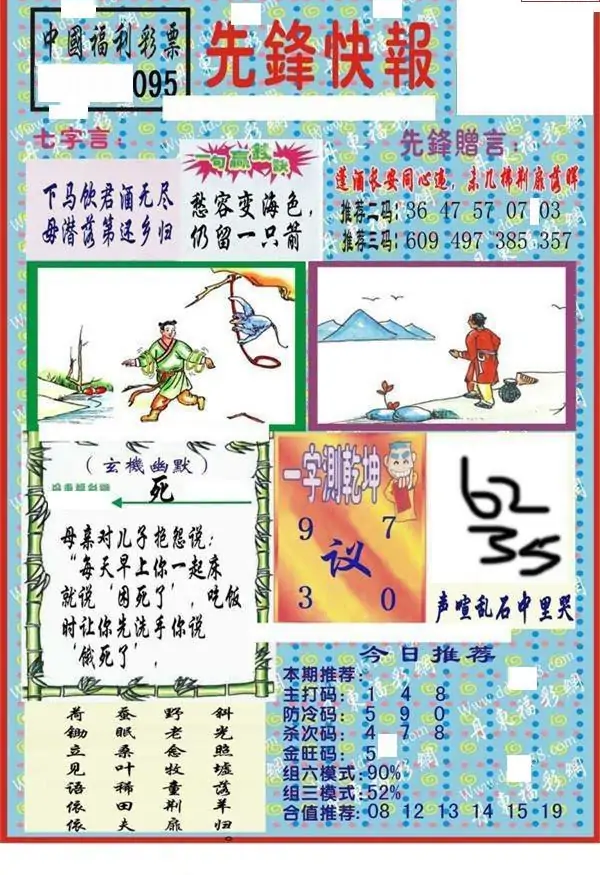 中國福利彩票
095
先鋒快報
七字言：
下马饮君酒无尽
毋潜落第还乡归
一句赢錢訣
愁容变海色，
仍留一只箭
先鋒贈言：
蓬酒长安同心违，未几掃荆扉落晖
推荐二码：36 47 57 07 03
推荐三码：609 497 385 357
（玄機幽默）
死
母亲对儿子抱怨说：
“每天早上你一起床
就说‘困死了’，吃饭
时让你先洗手你说
‘饿死了’，
一字測乾坤
9 7
议
3 0
62
35
声喧乱石中里哭
斜光照墟落羊归。
野老念牧童荆扉
蚕眠桑叶稀田夫
荷锄立见语依依
今日推荐
本期推荐：
主打码：1 4 8
防冷码：5 9 0
杀次码：4 7 8
金旺码：5
组六模式：90%
组三模式：52%
合值推荐：08 12 13 14 15 19